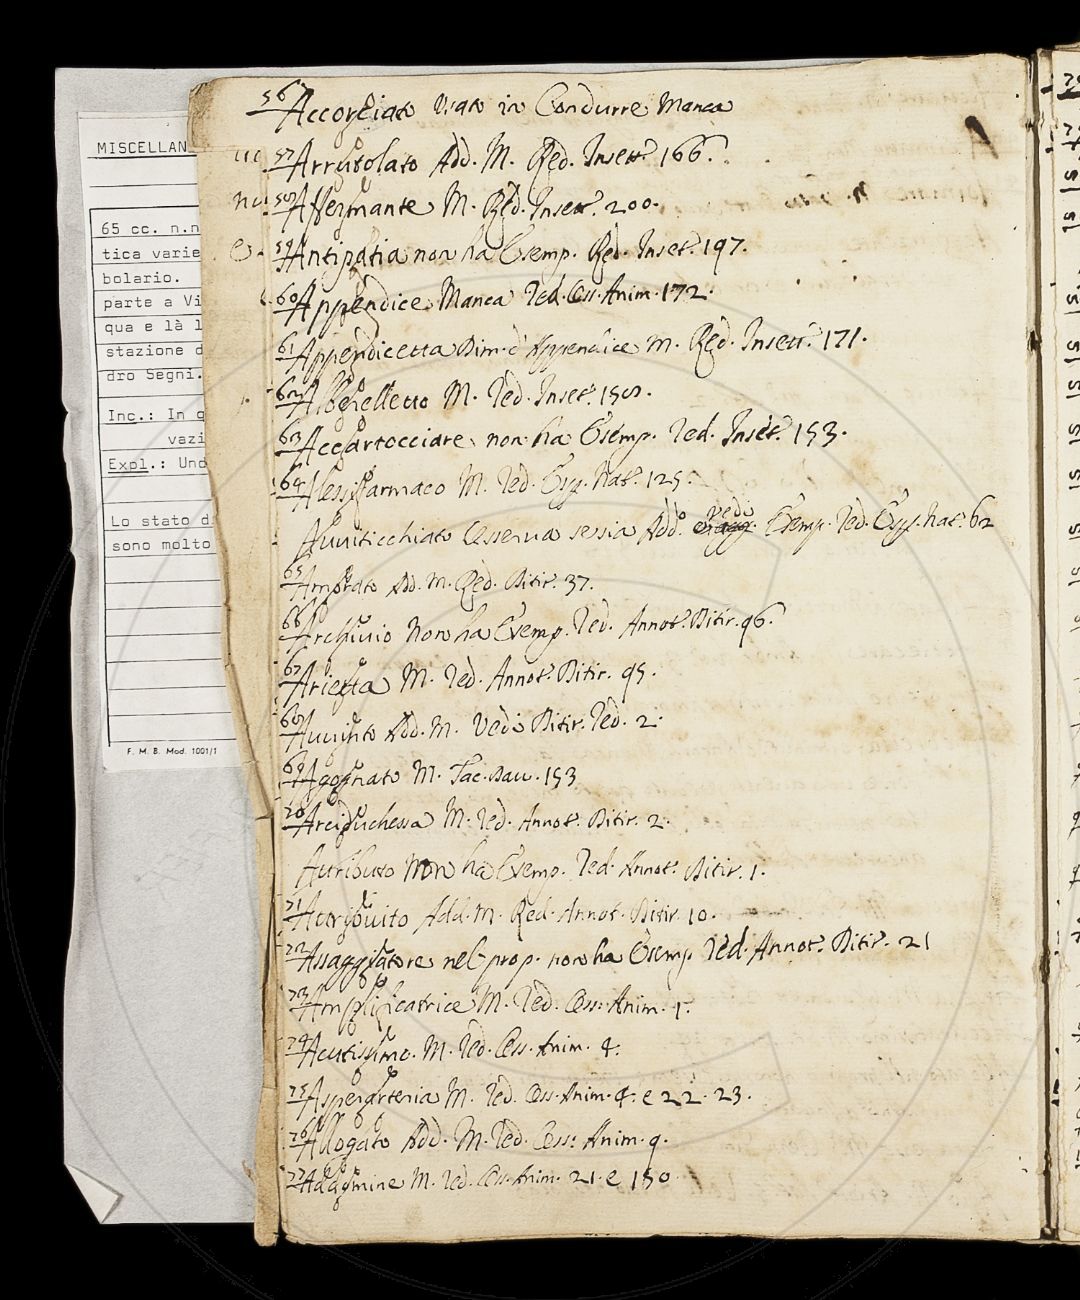 MISCELLAN
65 cc. n.n
tica varie
bolario.
parte a Vi
qua e là l
stazione d
dro Segni.
Inc.: In q
vazi
Expl.: Und
Lo stato d
sono molto
F. M. B. Mod. 1001/1
56 Accorciato Usato in Condurre Manca
57 Arrotolato Add. M. Red. Insett. 166.
58 Affermante M. Red. Insett. 200.
59 Antipatia non ha Esemp. Red. Inset. 197.
60 Appendice Manca Red. Oss. Anim. 172.
61 Appendicetta Dim. d'Appendice M. Red. Insett. 171.
62 Alberelletto M. Red. Inset. 158.
63 Accartocciare non ha Esemp. Red. Inset. 153.
64 Alessifarmaco M. Red. Esp. Nat. 125.
Avviticchiato Osserva se sia Add. vedi Esemp. Red. Esp. nat. 62
65 Ambrato Ad. M. Red. Ditir. 37.
66 Archivio Non ha Esemp. Red. Annot. Ditir. 96.
67 Arietta M. Red. Annot. Ditir. 95.
68 Avvinto Add. M. Vedi Ditir. Red. 2.
69 Agognato M. Tac. Dav. 153
70 Arciduchessa M. Red. Annot. Ditir. 2.
Attributo Non ha Esemp. Red. Annot. Ditir. 1.
71 Attribuito Add. M. Red. Annot. Ditir. 10.
72 Assaggiatore nel prop. non ha Esemp. Red. Annot. Ditir. 21
73 Amplificatrice M. Red. Oss. Anim. 1.
74 Acutissimo. M. Red. Oss. Anim. 4.
75 Asperarteria M. Red. Oss. Anim. 4. e 22. 23.
76 Allogato Add. M. Red. Oss. Anim. 9.
77 Addomine M. Red. Oss. Anim. 21. e 150